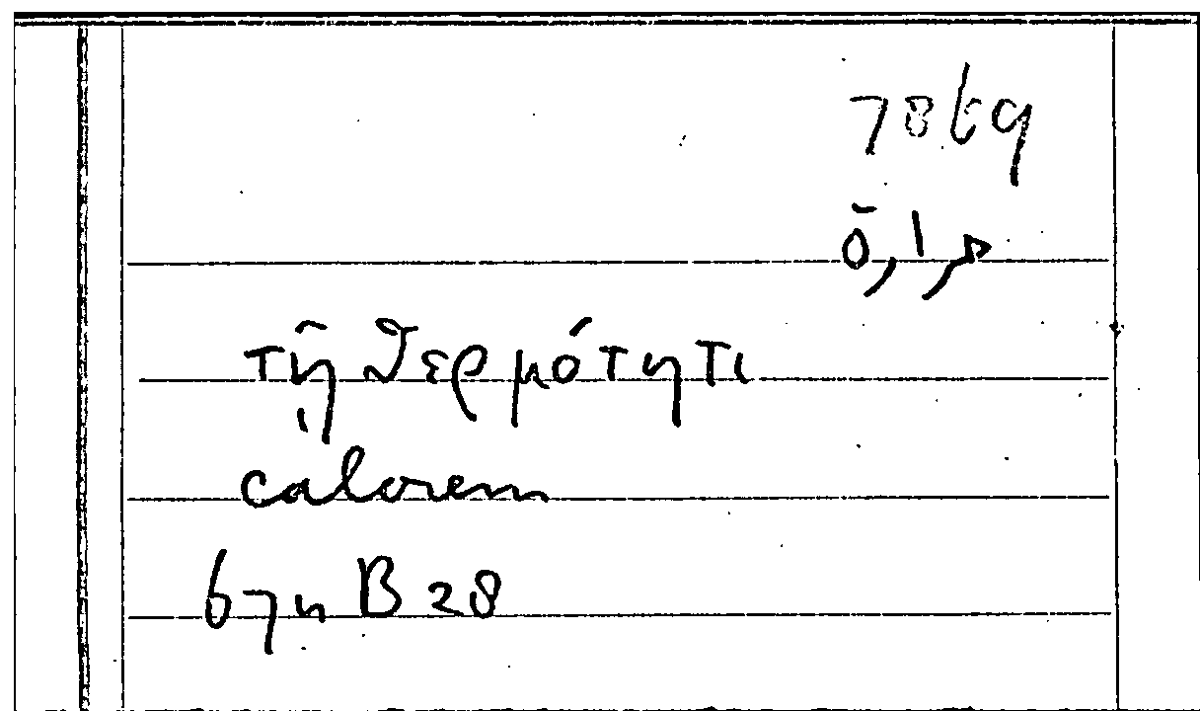 78 kg
ὁ, 1,
τῇ θερμότητι
calorem
67n B 28